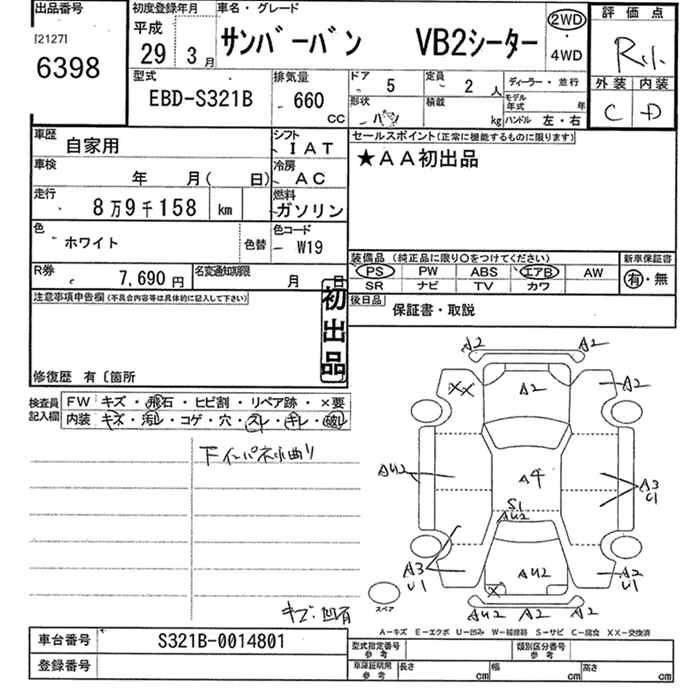 出品番号
[2127]
6398
初度登録年月
平成
29年3月
車名・グレード
サンバーバン VB2シーター
2WD
・
4WD
評価点
外装 内装
C D
型式
EBD-S321B
排気量
660
cc
ドア
5
定員
2人
ディーラー・並行
形状
バン
積載
kg
モデル年式 年
ハンドル 左・右
車歴
自家用
シフト
IAT
車検
年 月( 日)
冷房
AC
走行
8万9千158 km
燃料
ガソリン
色
ホワイト
色替
色コード
W19
R券
7,690円
名変通知期限
月 日
セールスポイント(正常に機能するものに限ります)
★AA初出品
装備品(純正品に限り○をつけてください)
PS PW ABS エアB AW
SR ナビ TV カワ
新車保証書
有・無
後日品
保証書・取説
注意事項申告欄(不具合内容等は具体的に記入して下さい)
初出品
修復歴 有〔箇所
検査員記入欄
FW キズ・飛石・ヒビ割・リペア跡・×要
内装 キズ・汚レ・コゲ・穴・スレ・キレ・破レ
下インパネ小曲り
キズ・凹有
A2 A2
XX A2 A2
AU2 A4 A3
U1
S1
AU2
A3
U1
AU2
A2
U1
X
AU2 A2 A2
スペア
A-キズ E-エクボ U-凹み W-補修跡 S-サビ C-腐食 XX-交換済
車台番号
S321B-0014801
登録番号
型式指定番号
参考
類別区分番号
参考
車庫証明用
参考
長さ cm
幅 cm
高さ cm